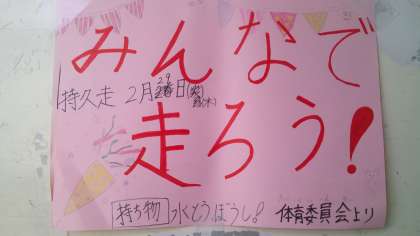 みんなで
持久走 2月29日(木)
走ろう!
持ち物 水とうぼうし! 体育委員会より